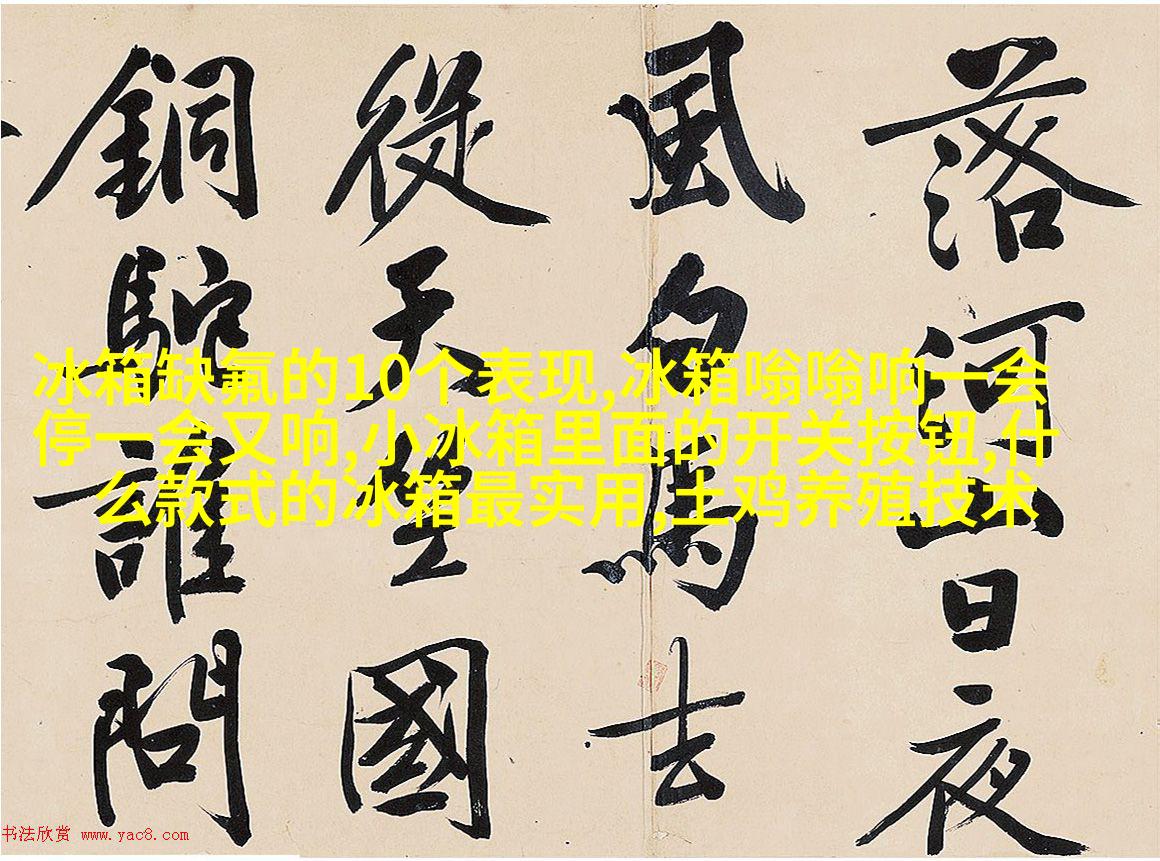 落河山日夜
風白馬去
從天竺國
銅駝誰問
冰箱缺氟的10个表现,冰箱嗡嗡响一会
停一会又响,小冰箱里面的开关按钮,什
么款式的冰箱最实用,土鸡养殖技术
书法欣赏 www.yac8.com